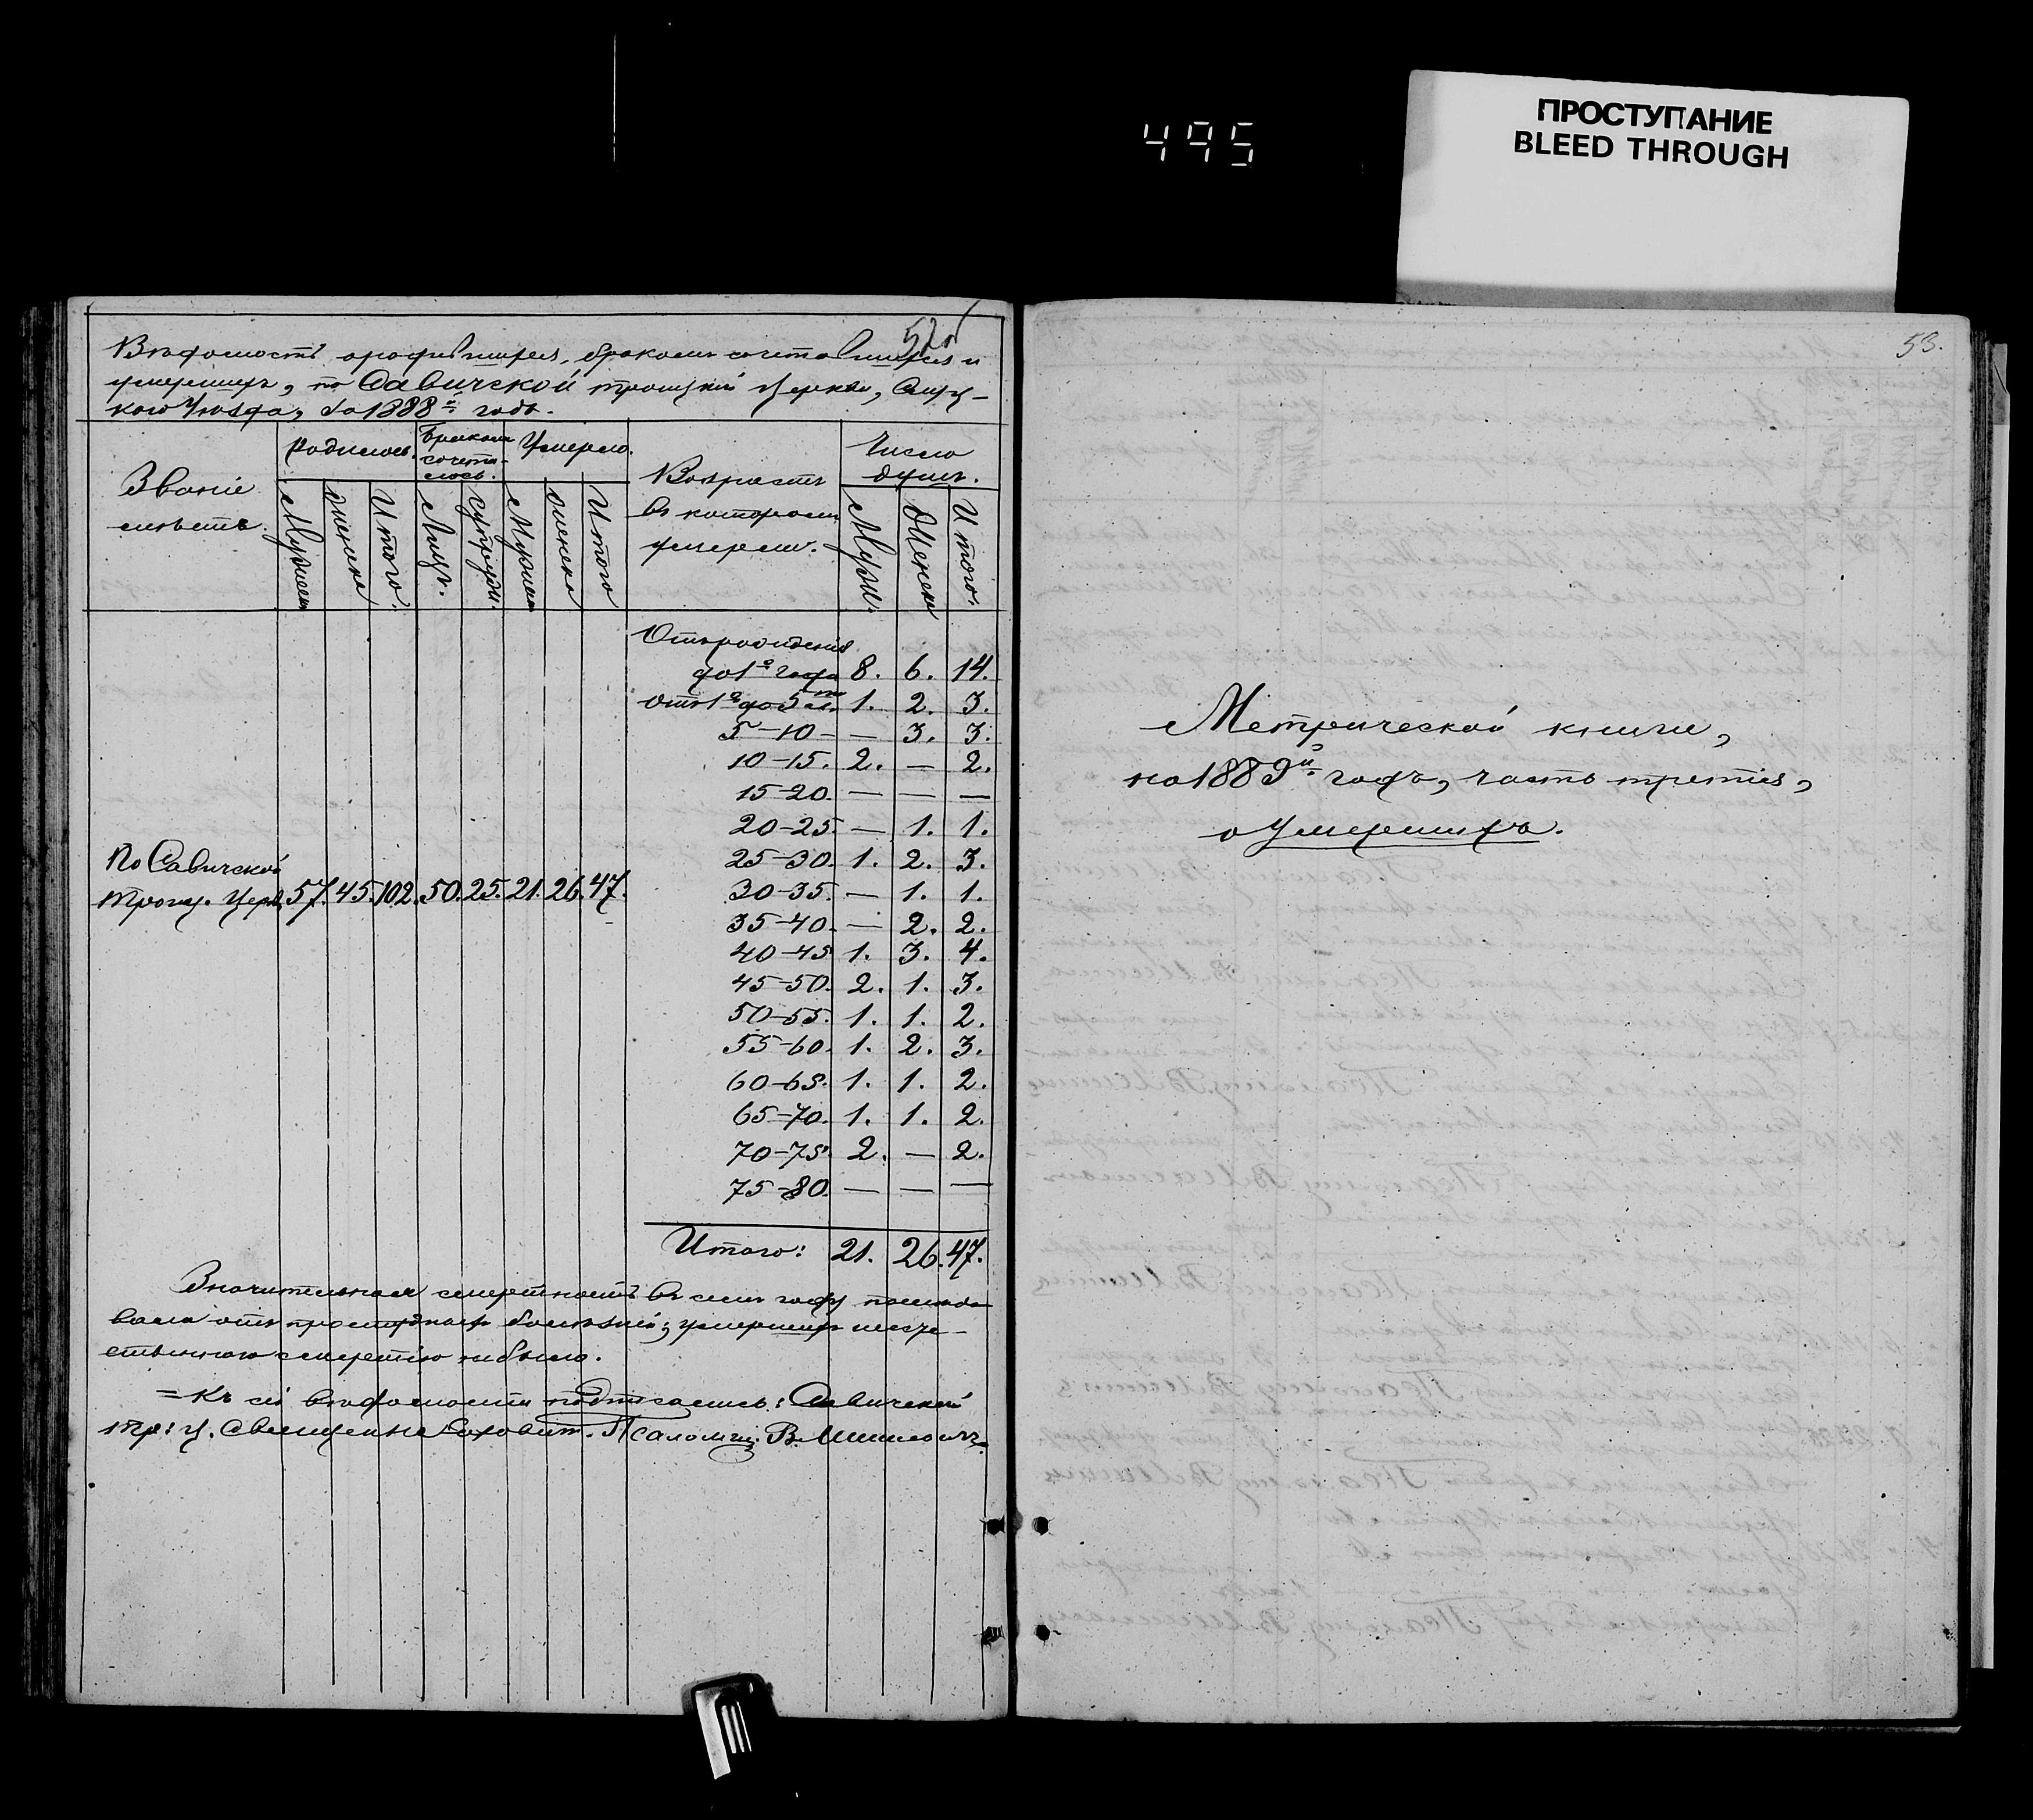 495
ПРОСТУПАНИЕ
BLEED THROUGH
52об
Вѣдомость о родившихся, бракомъ сочетавшихся и
умершихъ, по Савичской троицкой церкви, Слуц-
каго Уѣзда, за 1888й годъ.
Званіе
мѣстъ.
Родилось.
Бракомъ
сочета-
лось.
Умерло.
Возрастъ
въ которомъ
умерли.
Число
душъ.
Мужеска
женска
Итого.
Лицъ.
супруж.
Мужеска
женска
Итого
Муж.
Женска
Итого.
Отъ рожденія
до 1го года 8. 6. 14.
отъ 1го до 5ти 1. 2. 3.
5-10 - — 3. 3.
10-15. 2. — 2.
15-20. — — —
20-25. — 1. 1.
25-30. 1. 2. 3.
По Савичской
Троиц. Церк. 57. 45. 102. 50. 25. 21. 26. 47.
30-35. — 1. 1.
35-40. — 2. 2.
40-45 1. 3. 4.
45-50. 2. 1. 3.
50-55. 1. 1. 2.
55-60. 1. 2. 3.
60-65. 1. 1. 2.
65-70. 1. 1. 2.
70-75. 2. — 2.
75-80. — — —
Итого: 21. 26. 47.
Значительная смертность въ семъ году послѣдо
вала отъ простудныхъ болѣзней; умершихъ неесте-
ственною смертію не было.
= Къ сей вѣдомости подписались: Савичской
тр: ц. Священникъ Псаломщ. В.
53.
Метрической книги,
на 1889й годъ, часть третія,
о Умершихъ.